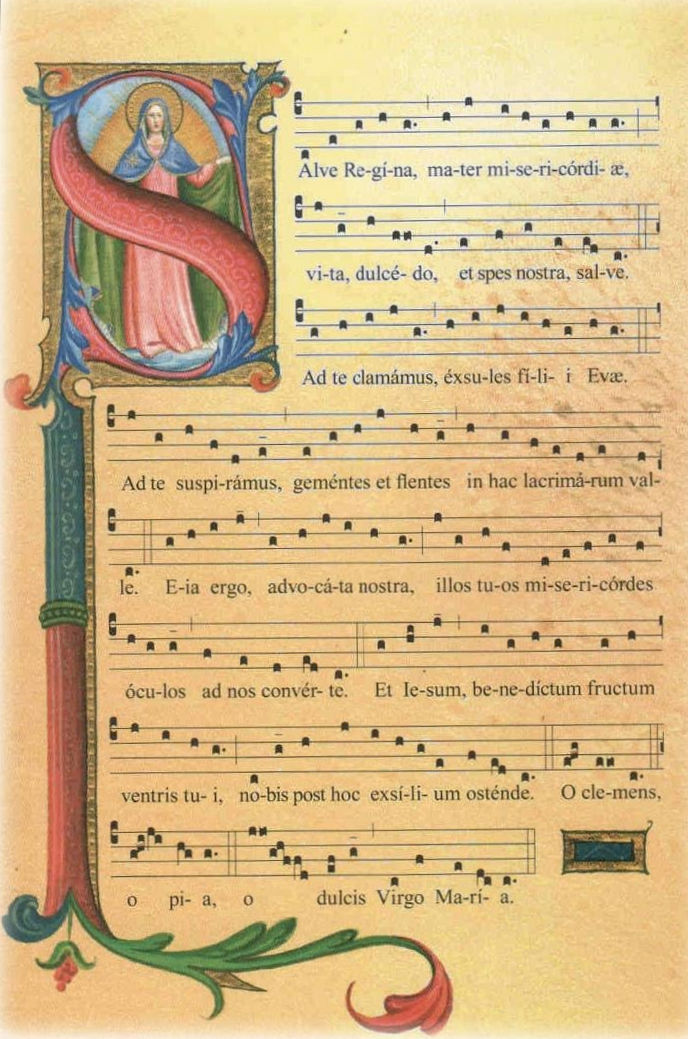 SAlve Re-gí-na, ma-ter mi-se-ri-córdi- æ,
vi-ta, dulcé- do, et spes nostra, sal-ve.
Ad te clamámus, éxsu-les fí-li- i Evæ.
Ad te suspi-rámus, geméntes et flentes in hac lacrimá-rum val-
le. E-ia ergo, advo-cá-ta nostra, illos tu-os mi-se-ri-córdes
ócu-los ad nos convér- te. Et Ie-sum, be-ne-díctum fructum
ventris tu- i, no-bis post hoc exsí-li- um osténde. O cle-mens,
o pi- a, o dulcis Virgo Ma-rí- a.